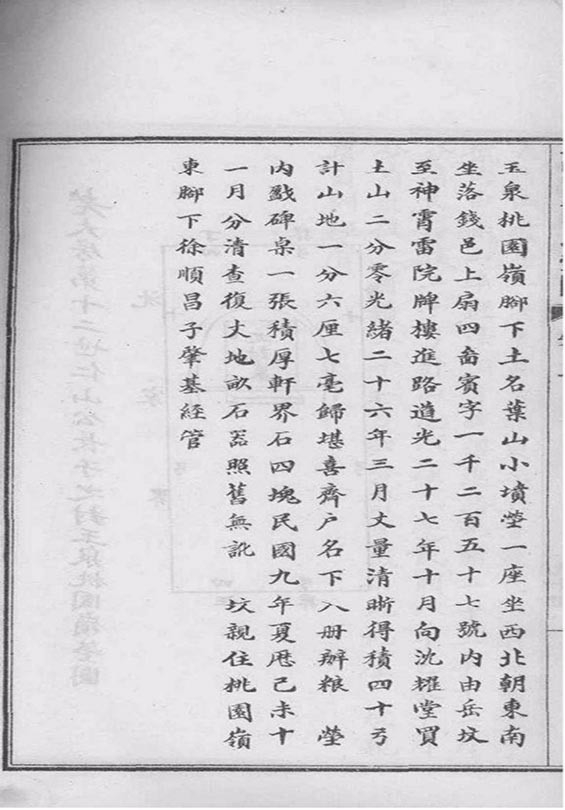 玉泉桃園嶺腳下土名葉山小墳塋一座坐西北朝東南
坐落錢邑上扇四啚賓字一千二百五十七號內由岳坟
至神霄雷院牌樓進路道光二十七年十月向沈耀堂買
土山二分零光緒二十六年三月丈量清晰得積四十弓
計山地一分六厘七毫歸堪喜齊户名下入册辦粮　塋
內戤碑桌一張積厚軒界石四塊民國九年夏厯己未十
一月分清查復丈地畝石器照舊無訛　坟親住桃園嶺
東腳下徐順昌子肇基經管